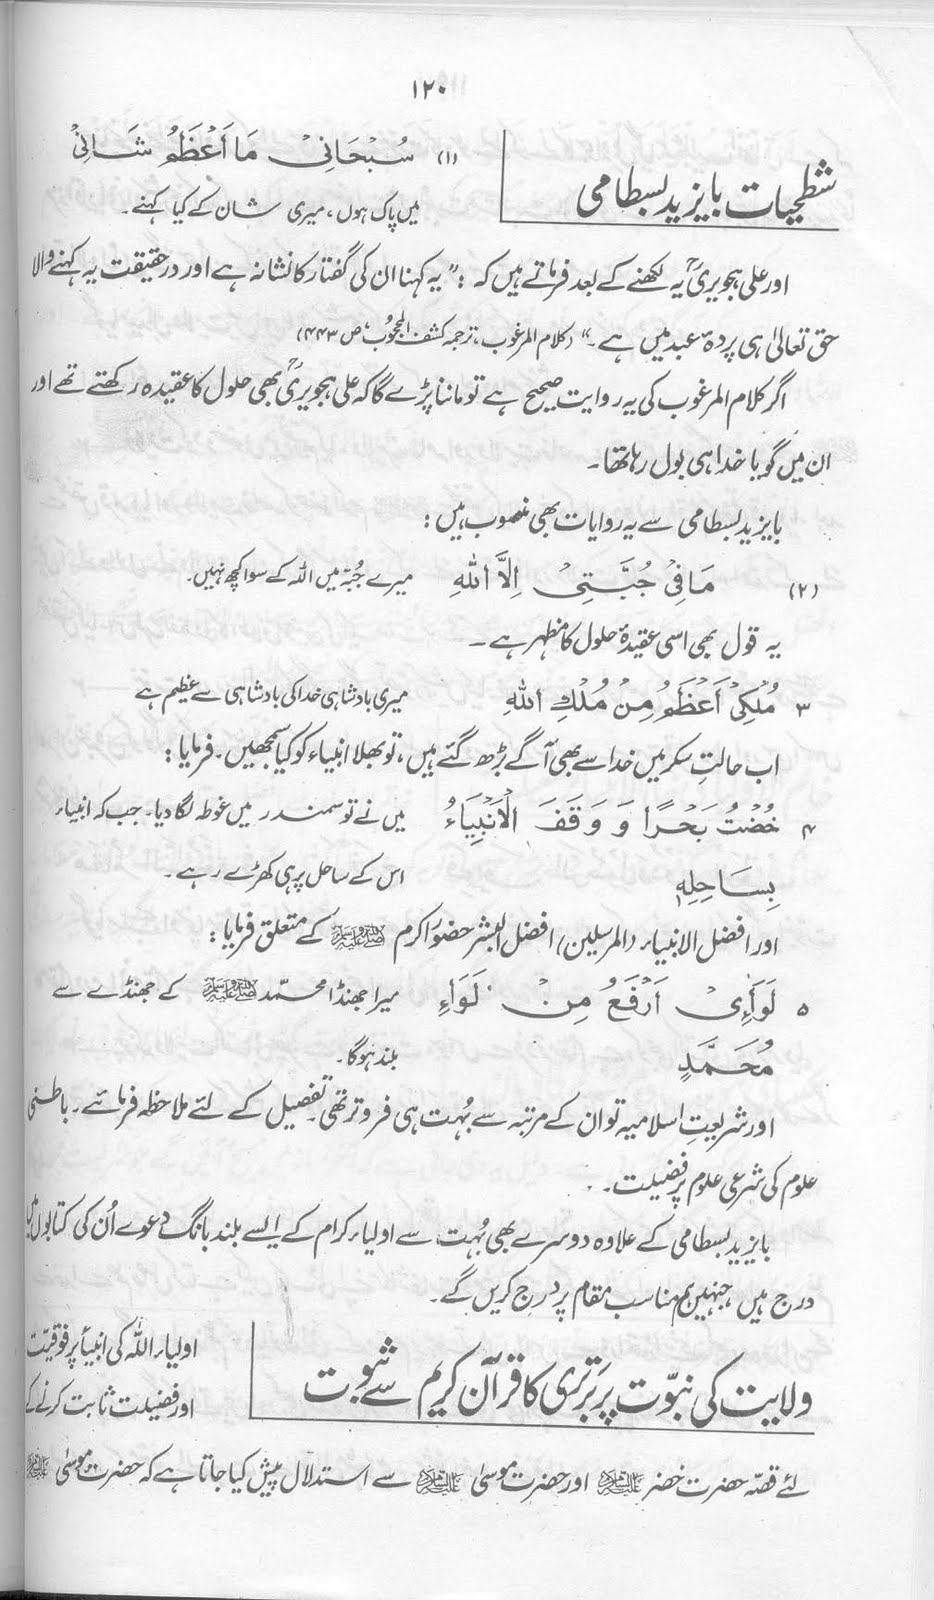 ۱۲۰
شطحیات بایزید بسطامی
(۱) سُبْحَانِیْ مَا اَعْظَمُ شَانِیْ
میں پاک ہوں، میری شان کے کیا کہنے۔
اور علی ہجویریؒ یہ لکھنے کے بعد فرماتے ہیں کہ: "یہ کہنا ان کی گفتار کا نشانہ ہے اور درحقیقت یہ کہنے والا
حق تعالیٰ ہی پردۂ عبد میں ہے۔" (کلام المرغوب، ترجمہ کشف المحجوب، ص ۴۴۳)
اگر کلام المرغوب کی یہ روایت صحیح ہے تو ماننا پڑے گا کہ علی ہجویریؒ بھی حلول کا عقیدہ رکھتے تھے اور
ان میں گویا خدا ہی بول رہا تھا۔
بایزید بسطامی سے یہ روایات بھی منصوب ہیں:
(۲) مَا فِیْ جُبَّتِیْ اِلَّا اللّٰہِ میرے جُبّہ میں اللہ کے سوا کچھ نہیں۔
یہ قول بھی اسی عقیدۂ حلول کا مظہر ہے۔
۳ مُلْکِیْ اَعْظَمُ مِنْ مُلْكِ اللّٰہِ میری بادشاہی خدا کی بادشاہی سے عظیم ہے
اب حالتِ سکر میں خدا سے بھی آگے بڑھ گئے ہیں، تو بھلا انبیاء کو کیا سمجھیں۔ فرمایا:
۴ خُضْتُ بَحْرًا وَ وَقَفَ الْاَنْبِیَاءُ میں نے تو سمندر میں غوطہ لگا دیا۔ جب کہ انبیاء
بِسَاحِلِہٖ اس کے ساحل پر ہی کھڑے رہے۔
اور افضل الانبیاء (والمرسلین) افضل البشر حضورِ اکرم ﷺ کے متعلق فرمایا:
۵ لَوَاءِیْ اَرْفَعُ مِنْ لَوَاءِ میرا جھنڈا محمّد ﷺ کے جھنڈے سے
مُحَمَّدٍ بلند ہوگا۔
اور شریعتِ اسلامیہ تو ان کے مرتبہ سے بہُت ہی فروتر تھی۔ تفصیل کے لئے ملاحظہ فرمائیے۔ باطنی
علوم کی شرعی علوم پر فضیلت۔
بایزید بسطامی کے علاوہ دوسرے بھی بہُت سے اولیاء کرام کے ایسے بلند بانگ دعوے اُن کی کتابوں میں
درج ہیں جنہیں ہم مناسب مقام پر درج کریں گے۔
ولایت کی نبوّت پر برتری کا قرآن کریم سے ثبوت
اولیاء اللہ کی انبیاء پر فوقیّت
اور فضیلت ثابت کرنے کے
لئے قصّہ حضرت خضر علیہ السلام اور حضرت موسیٰ علیہ السلام سے استدلال پیش کیا جاتا ہے کہ حضرت موسیٰ علیہ السلام